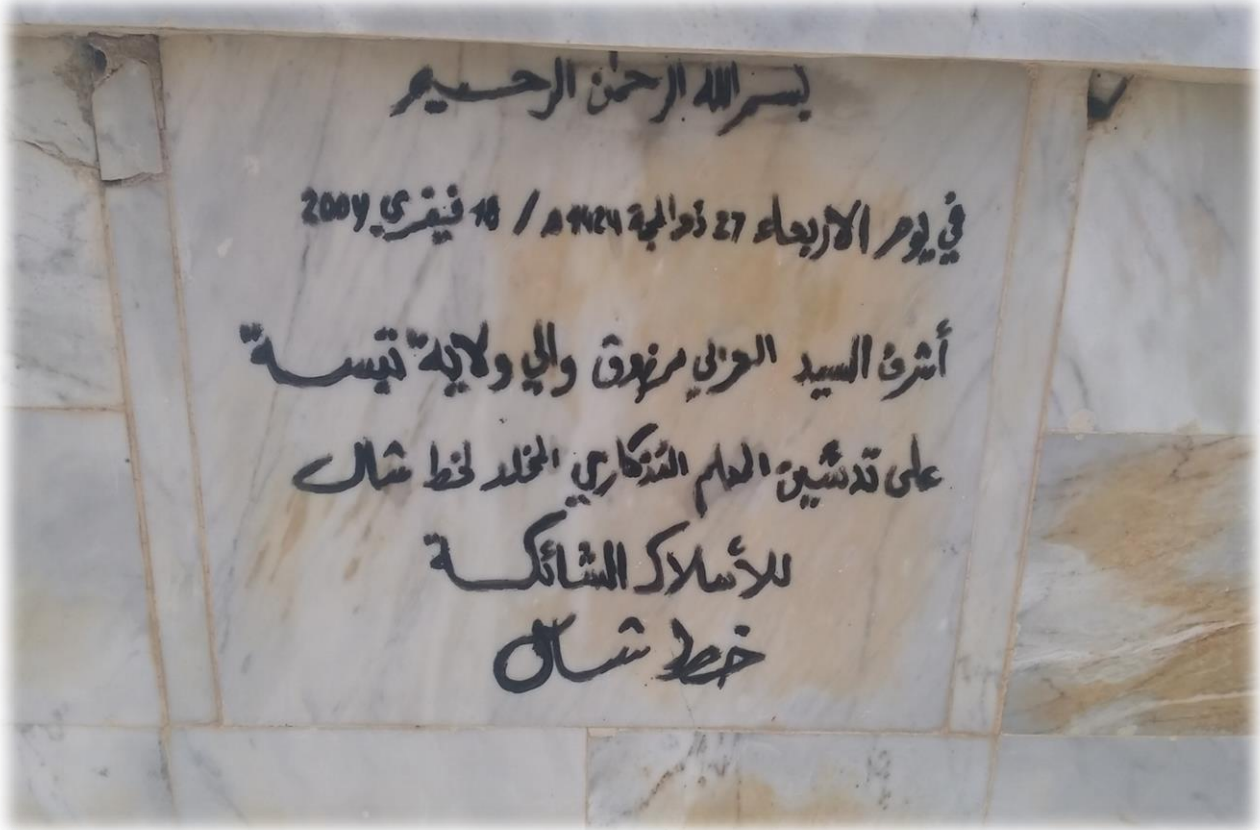 بسم الله الرحمٰن الرحيم
في يوم الاربعاء 27 ذوالحجة 1424 هـ / 18 فيفري 2004
أشرف السيد العربي مرزوق والي ولاية "تبسة"
على تدشين المعلم التذكاري المخلد لخط شال
للأسلاك الشائكة
خط شال